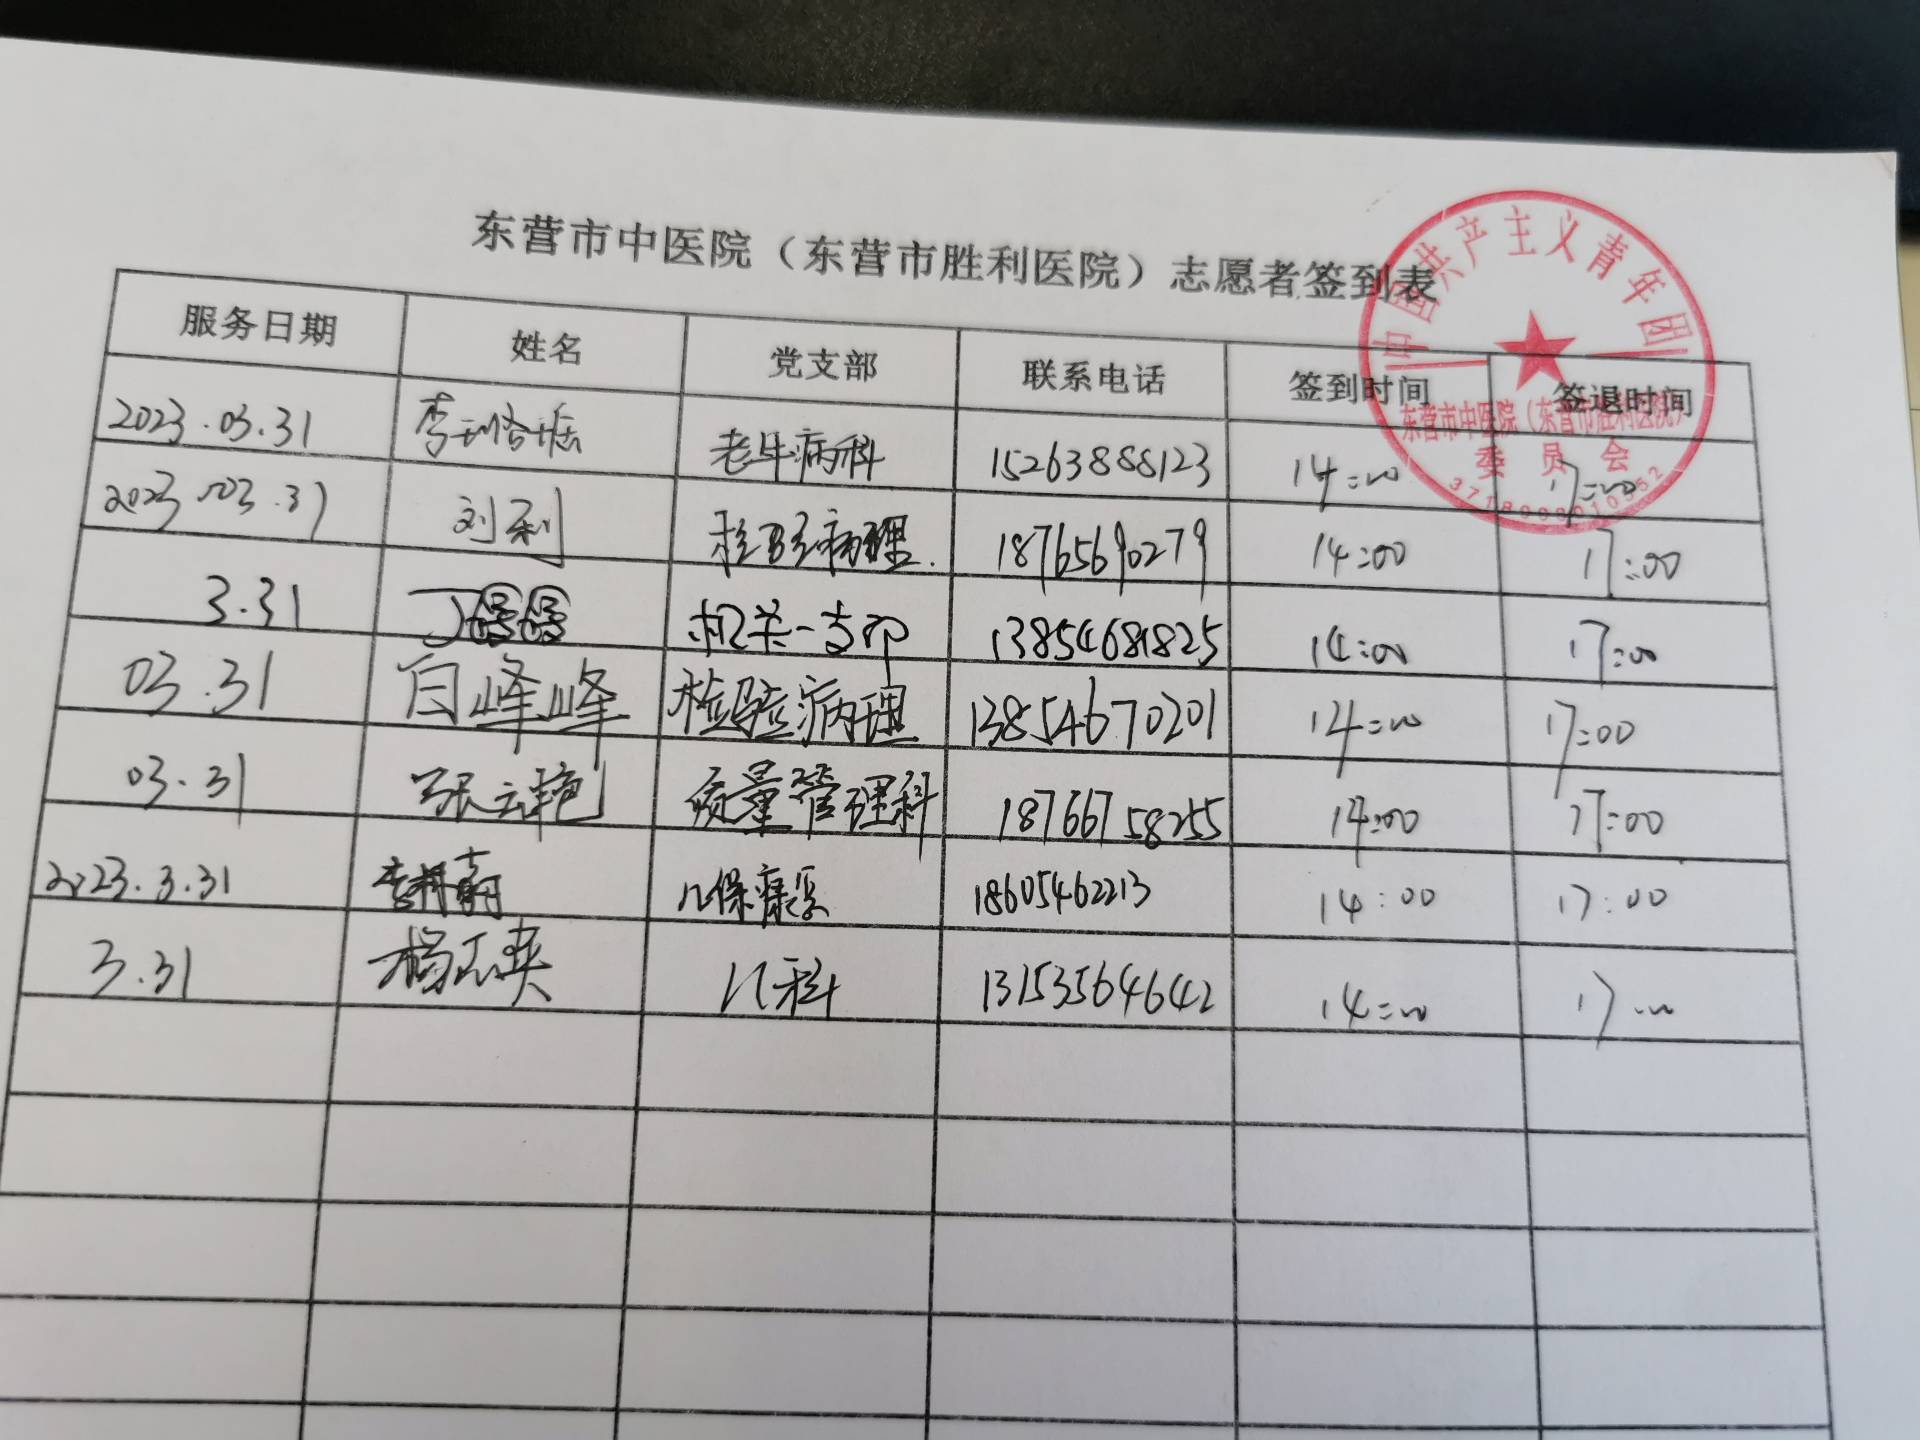 东营市中医院（东营市胜利医院）志愿者签到表
中国共产主义青年团
东营市中医院（东营市胜利医院）
委员会
服务日期 姓名 党支部 联系电话 签到时间 签退时间
2023.03.31 李 老年病科 15263888123 14:00 17:00
2023.03.31 刘利 检验病理. 18765690279 14:00 17:00
3.31 丁 机关一支部 13854681825 14:00 17:00
03.31 白峰峰 检验病理 13854670201 14:00 17:00
03.31 张云艳 质量管理科 18766758255 14:00 17:00
2023.3.31 李 儿保康复 18605462213 14:00 17:00
3.31 杨 儿科 13153564642 14:00 17:00